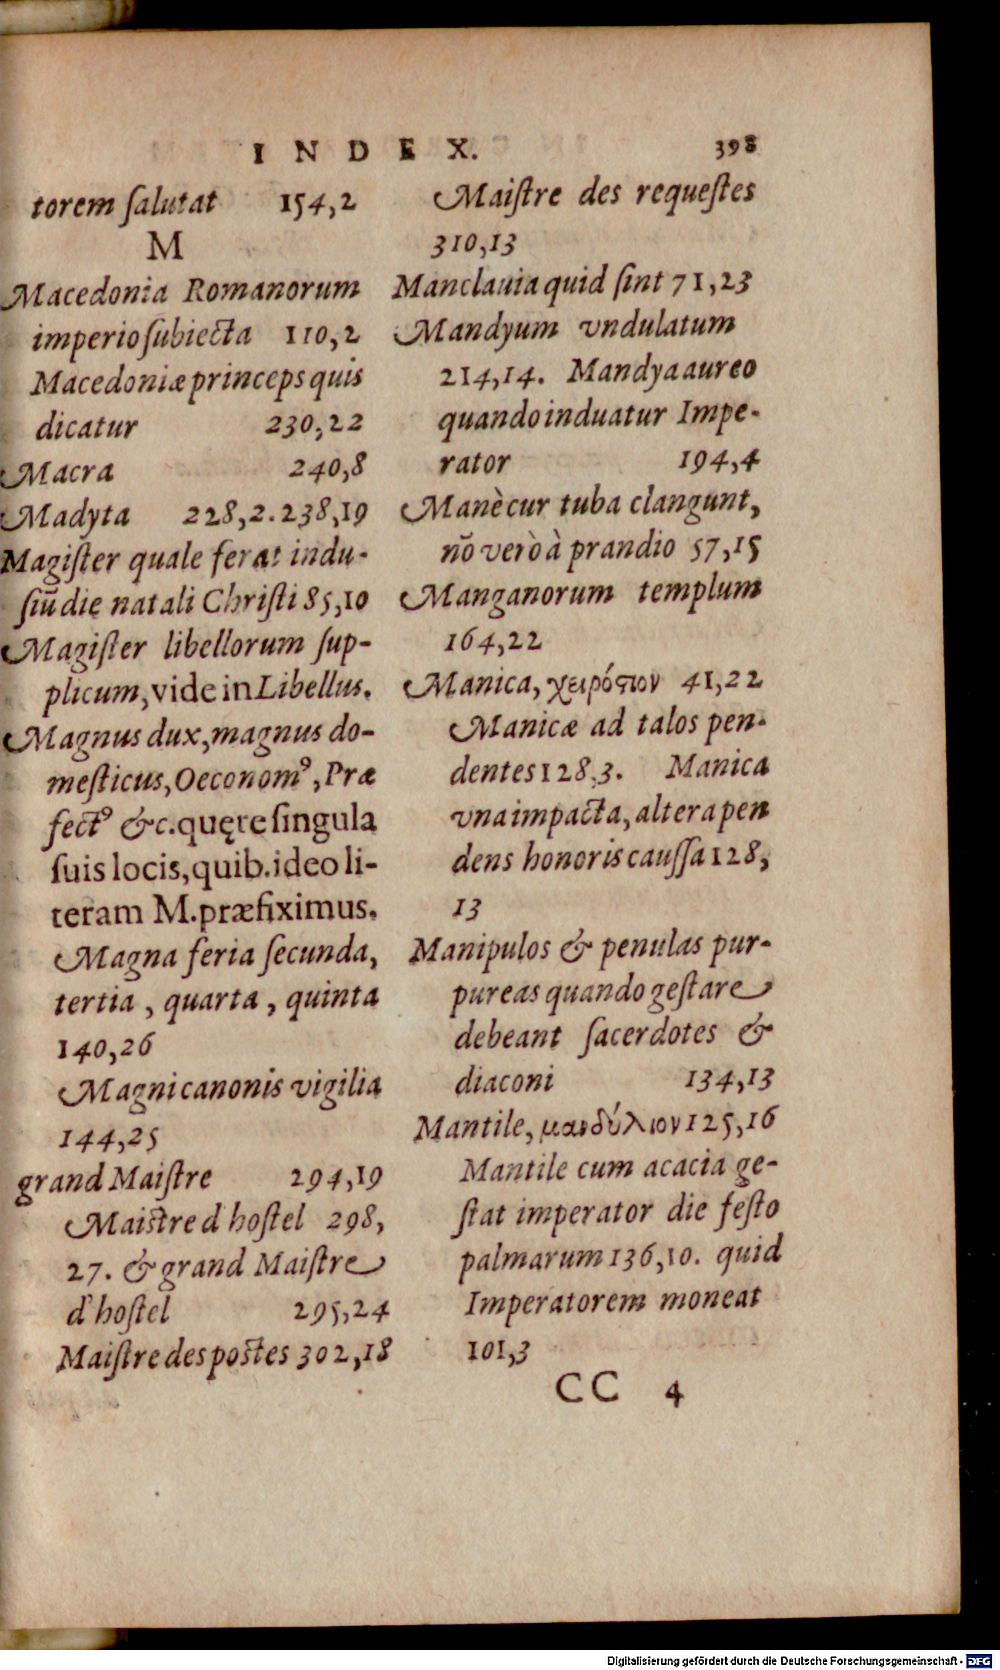 INDEX. 398
torem ſalutat 154,2
M
Macedonia Romanorum
imperio ſubiecta 110,2
Macedoniæ princeps quis
dicatur 230,22
Macra 240,8
Madyta 228,2.238,19
Magiſter quale ferat indu-
ſiũ die natali Chriſti 85,10
Magiſter libellorum ſup-
plicum, vide in Libellus.
Magnus dux, magnus do-
meſticus, Oeconomꝰ, Præ
fectꝰ &c. quęre ſingula
ſuis locis, quib. ideo li-
teram M. præfiximus.
Magna feria ſecunda,
tertia, quarta, quinta
140,26
Magni canonis vigilia
144,25
grand Maiſtre 294,19
Maiſtre d'hoſtel 298,
27. & grand Maiſtre
d'hoſtel 295,24
Maiſtre des poſtes 302,18
Maiſtre des requeſtes
310,13
Manclauia quid ſint 71,23
Mandyum vndulatum
214,14. Mandya aureo
quando induatur Impe-
rator 194,4
Manè cur tuba clangunt,
nõ verò à prandio 57,15
Manganorum templum
164,22
Manica, χειρόϛιον 41,22
Manicæ ad talos pen-
dentes 128,3. Manica
vna impacta, altera pen
dens honoris cauſſa 128,
13
Manipulos & penulas pur-
pureas quando geſtare
debeant ſacerdotes &
diaconi 134,13
Mantile, μανδύλιον 125,16
Mantile cum acacia ge-
ſtat imperator die feſto
palmarum 136,10. quid
Imperatorem moneat
101,3
CC 4
Digitalisierung gefördert durch die Deutsche Forschungsgemeinschaft - DFG